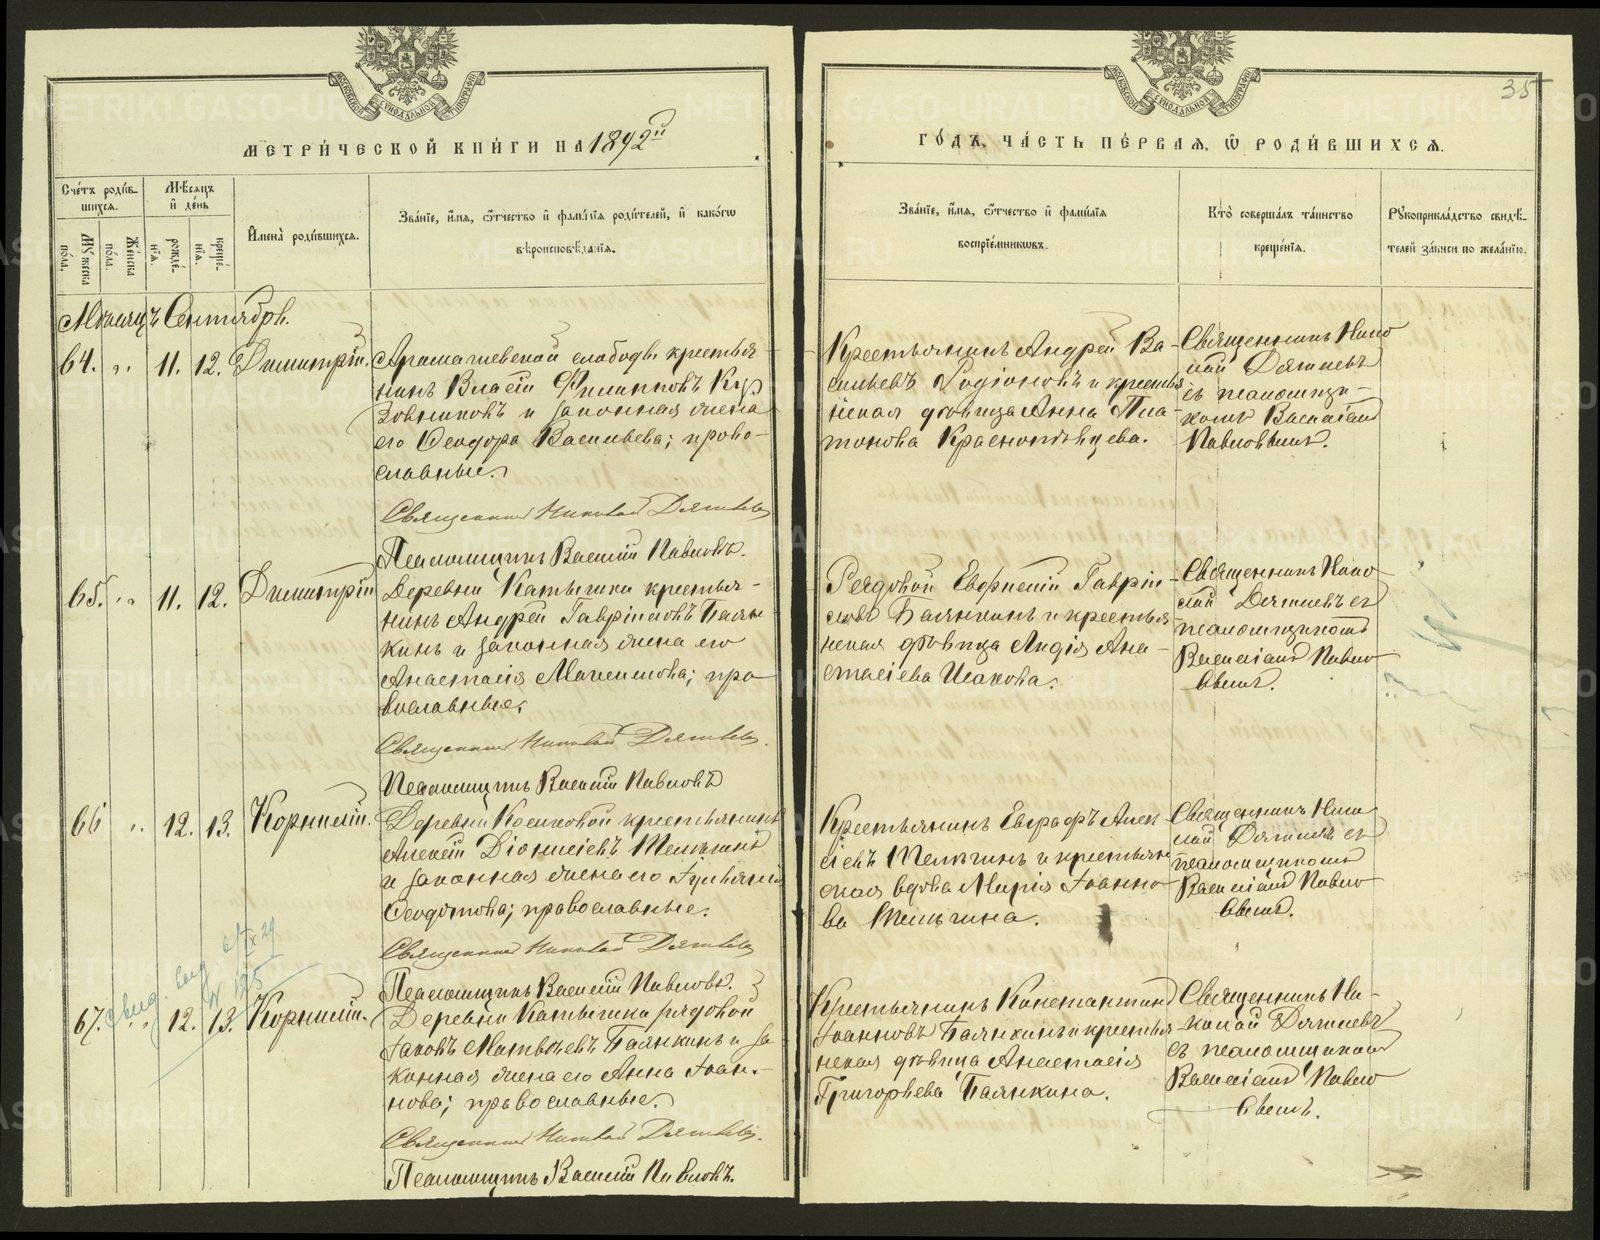 35
МЕТРИ́ЧЕСКОЙ КНИ́ГИ НА 1892й
ГО́ДЪ, ЧА́СТЬ ПЕ́РВАЯ, Ѡ РОДИ́ВШИХСЯ.
Сче́тъ роди́в-
шихся.
Мꙋжеска
по́ла.
Женска
по́ла.
Мѣ́сяцъ
и де́нь
рожде́-
нїя.
креще́-
нїя.
И́мена роди́вшихся.
Зва́нїе, и́мя, ѻ́тчество и фами́лїя роди́телей, и како́гѡ
вѣроисповѣ́данїя.
Зва́нїе, и́мя, ѻ́тчество и фами́лїя
воспрїе́мникѡвъ.
Кто̀ соверша́лъ та́инство
креще́нїя.
Рꙋкоприкла́дство свидѣ́-
телей за́писи по жела́нїю.
Мѣсяцъ Сентябрь.
64. „ 11. 12. Димитрій.
Арамашевской слободы крестья-
нинъ Власій Филипповъ
и законная жена
его Ѳеодора Васильева; право-
славные.
Священникъ Николай Дягилевъ
Псаломщикъ Василій Павловъ.
Крестьянинъ Андрей Ва-
сильевъ Родіоновъ и крестья
нская дѣвица Анна Пла-
тонова Краснопѣвцева.
Священникъ Нико
лай Дягилевъ
съ псаломщи-
комъ Василіемъ
Павловымъ.
65. „ 11. 12. Димитрій
Деревни Катышки крестья-
нинъ Андрей Гавріиловъ Балян
кинъ и законная жена его
Анастасія Максимова; пра
вославные.
Священникъ Николай Дягилевъ.
Псаломщикъ Василій Павловъ
Рядовой Евфистій Гаврiи-
ловъ Балянкинъ и крестья
нская дѣвица Лидія Ана-
стасіева Исакова.
Священникъ Нико
лай Дягилевъ съ
псаломщикомъ
Василіемъ Павло
вымъ.
66 „ 12. 13. Корнилій.
Деревни Косиковой крестьянинъ
Алексій Діонисіевъ Мелигинъ
и законная жена его Іуліанія
Ѳеодотова; православные.
Священникъ Николай Дягилевъ
Псаломщикъ Василій Павловъ.
Крестьянинъ Евграфъ Алек
сіевъ Мелигинъ и крестьян
ская вдова Марія Іоанно
ва Мелигина.
Священникъ Нико
лай Дягилевъ съ
псаломщикомъ
Василіемъ Павло
вымъ.
67. „ 12. 13. Корнилій.
Деревни Катышки рядовой
Іаковъ Матвѣевъ Балянкинъ и за
конная жена его Анна Іоан-
нова; православные.
Священникъ Николай Дягилевъ.
Псаломщикъ Василій Павловъ.
Крестьянинъ Константинъ
Іоанновъ Балянкинъ и крестья
нская дѣвица Анастасія
Григорьева Балянкина.
Священникъ Ни-
колай Дягилевъ
съ псаломщикомъ
Василіемъ Павло
вымъ.
METRIKI.GASO-URAL.RU